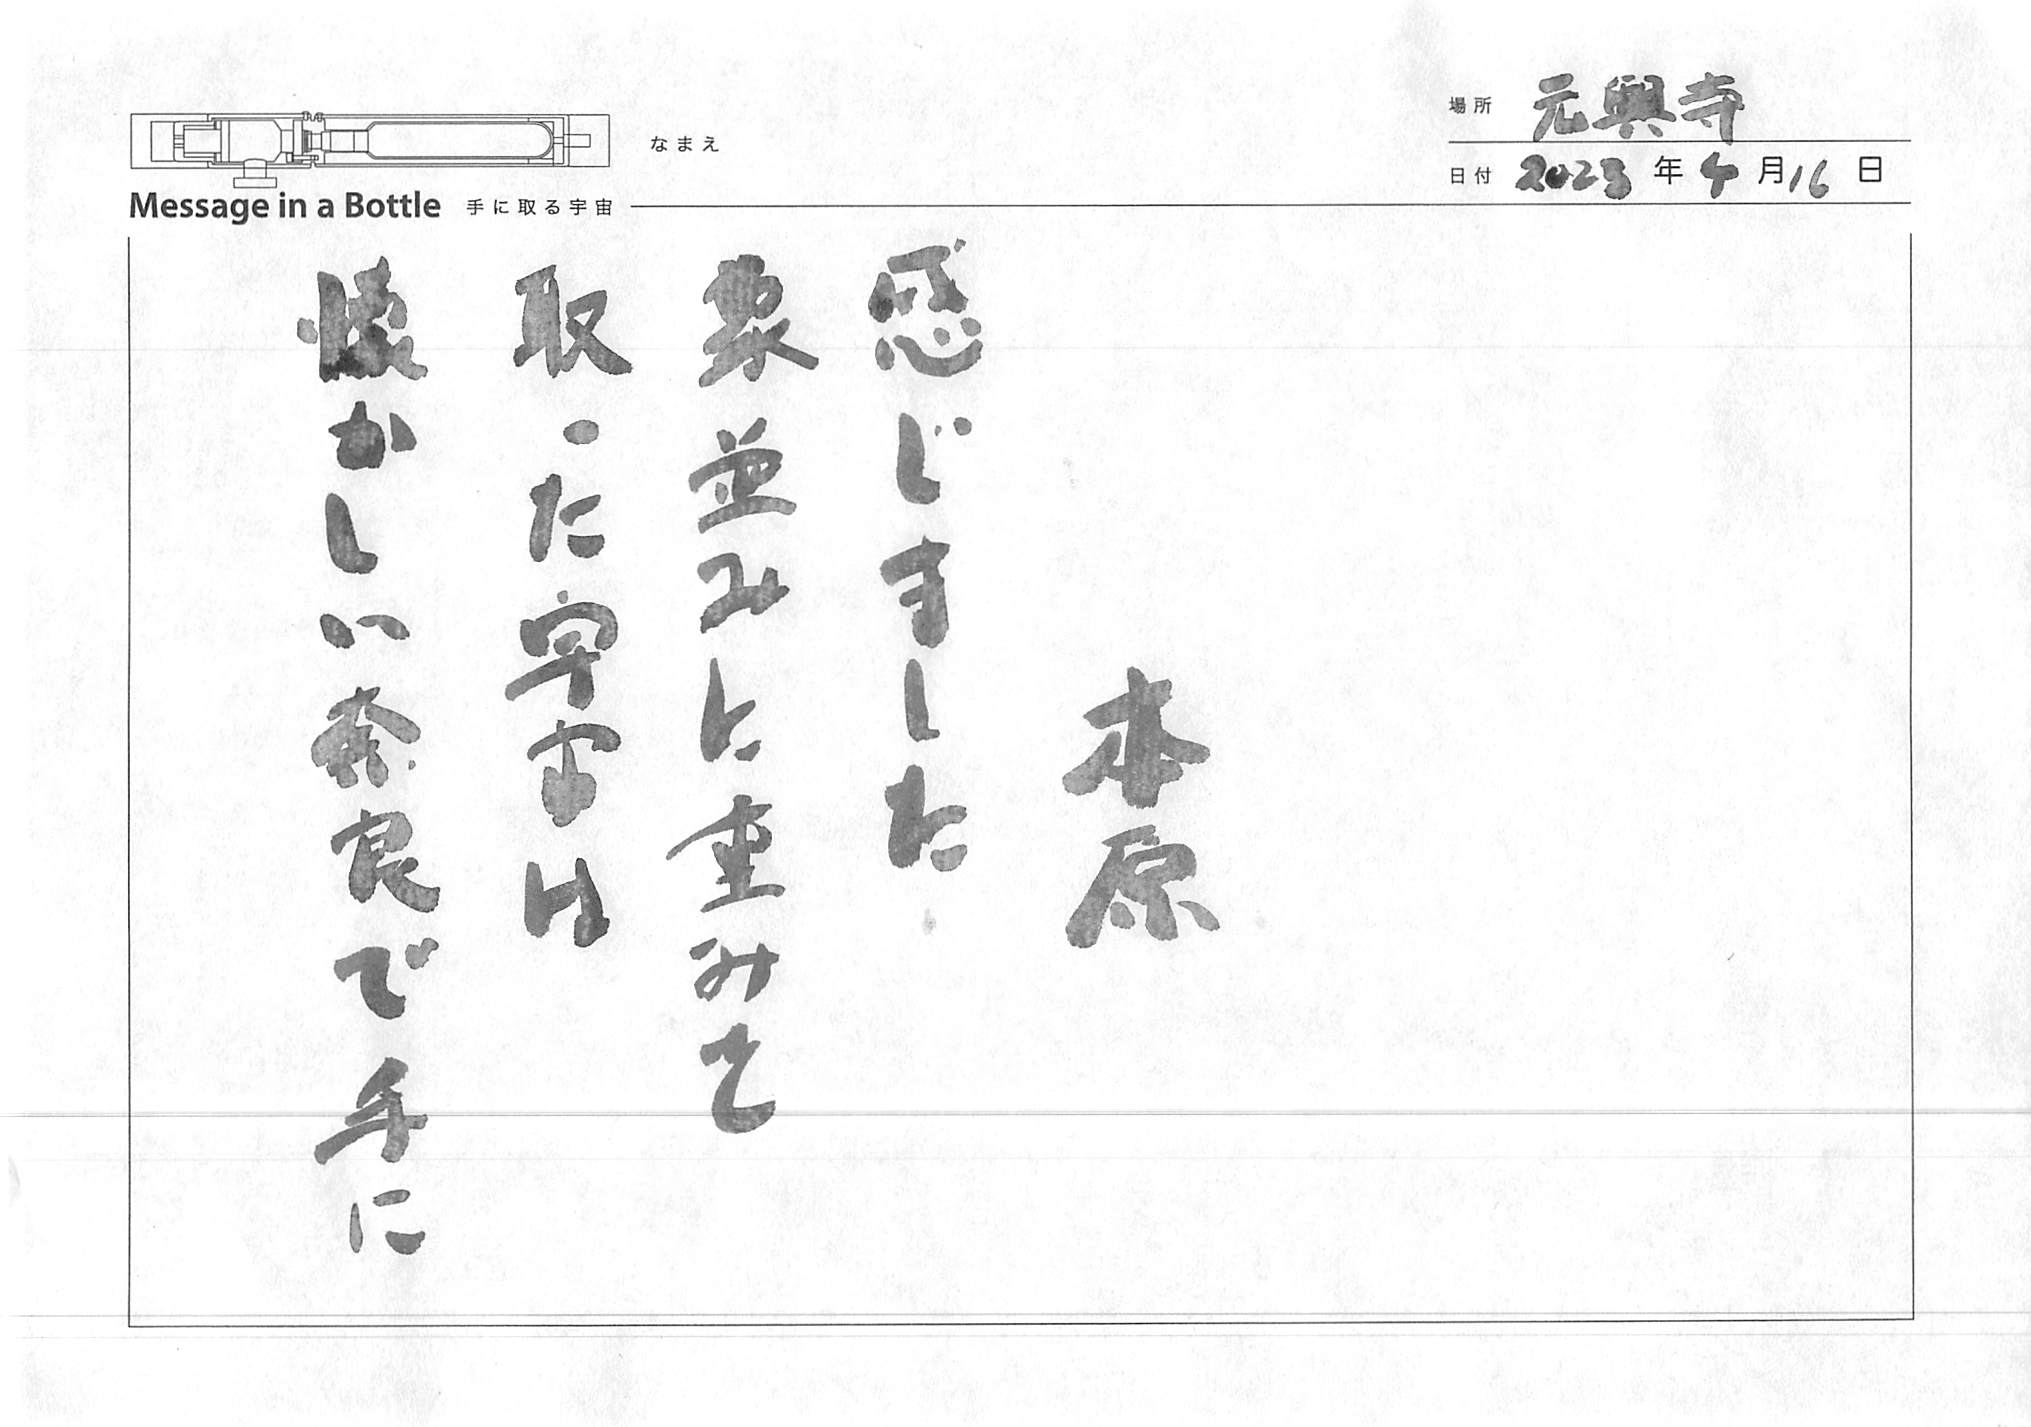 場所 元興寺
なまえ
日付 2023年4月16日
Message in a Bottle 手に取る宇宙
懐かしい奈良で手に
取った宇宙は
象並みに重みを
感じました
本原